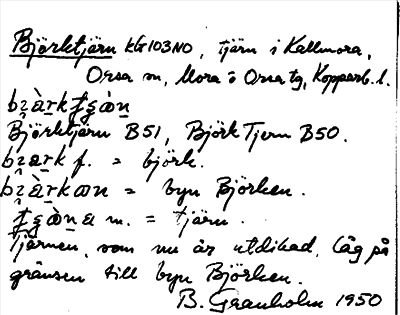 Björktjärn kG103NO, tjärn i Kallmora,
Orsa sn, Mora o Orsa tg, Kopparb. l.
Björktjärn B51, Björk Tjern B50.
f. = björk.
= byn Björken.
m. = tjärn.
Tjärnen, som nu är utdikad, låg på
gränsen till byn Björken.
B. Granholm 1950